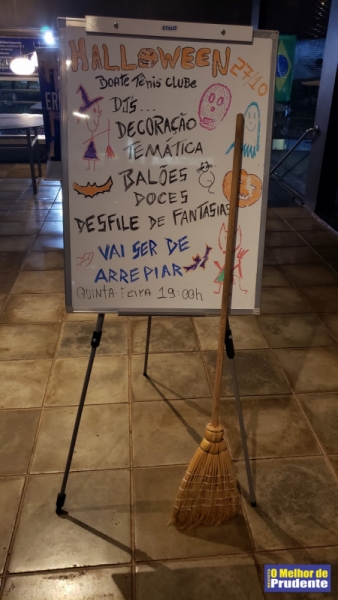 HALLOWEEN
27/10
BOATE TÊNIS CLUBE
DJS...
DECORAÇÃO
TEMÁTICA
BALÕES
DOCES
DESFILE DE FANTASIAS
VAI SER DE
ARREPIAR
QUINTA-FEIRA 19:00h
O Melhor de
Prudente